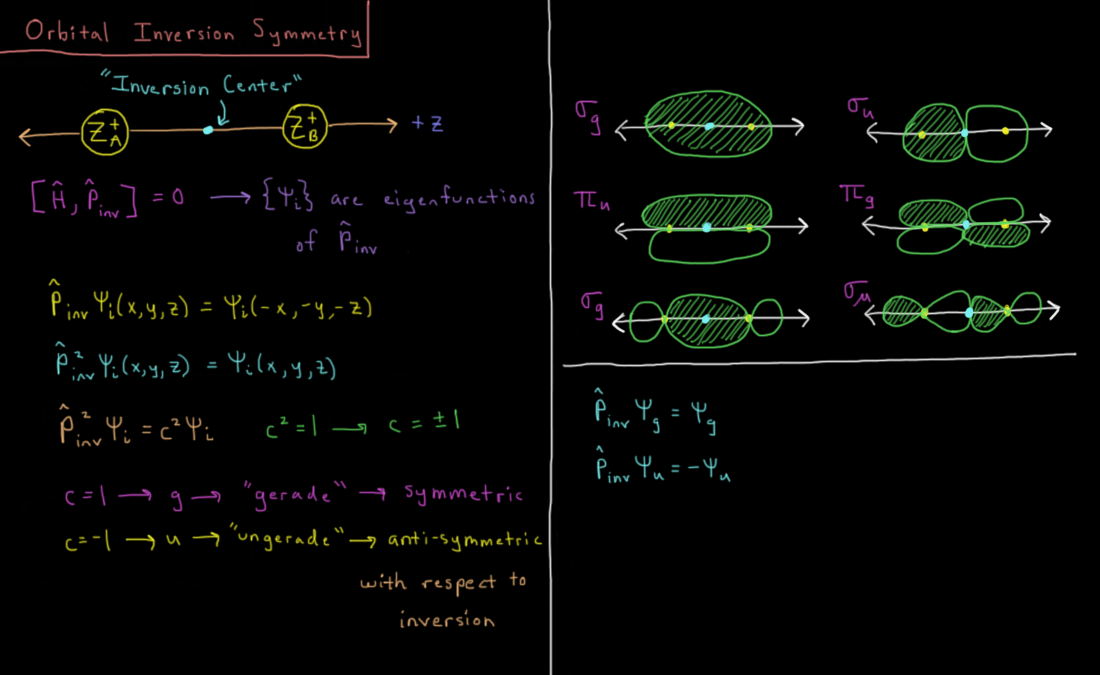 Orbital Inversion Symmetry
"Inversion Center"
Z_A^+ Z_B^+ +z
[Ĥ, P̂_inv] = 0 → {Ψ_i} are eigenfunctions
of P̂_inv
P̂_inv Ψ_i(x,y,z) = Ψ_i(-x,-y,-z)
P̂_inv^2 Ψ_i(x,y,z) = Ψ_i(x,y,z)
P̂_inv^2 Ψ_i = c^2 Ψ_i c^2 = 1 → c = ±1
c=1 → g → "gerade" → symmetric
c=-1 → u → "ungerade" → anti-symmetric
with respect to
inversion
σ_g σ_u
π_u π_g
σ_g σ_u
P̂_inv Ψ_g = Ψ_g
P̂_inv Ψ_u = -Ψ_u